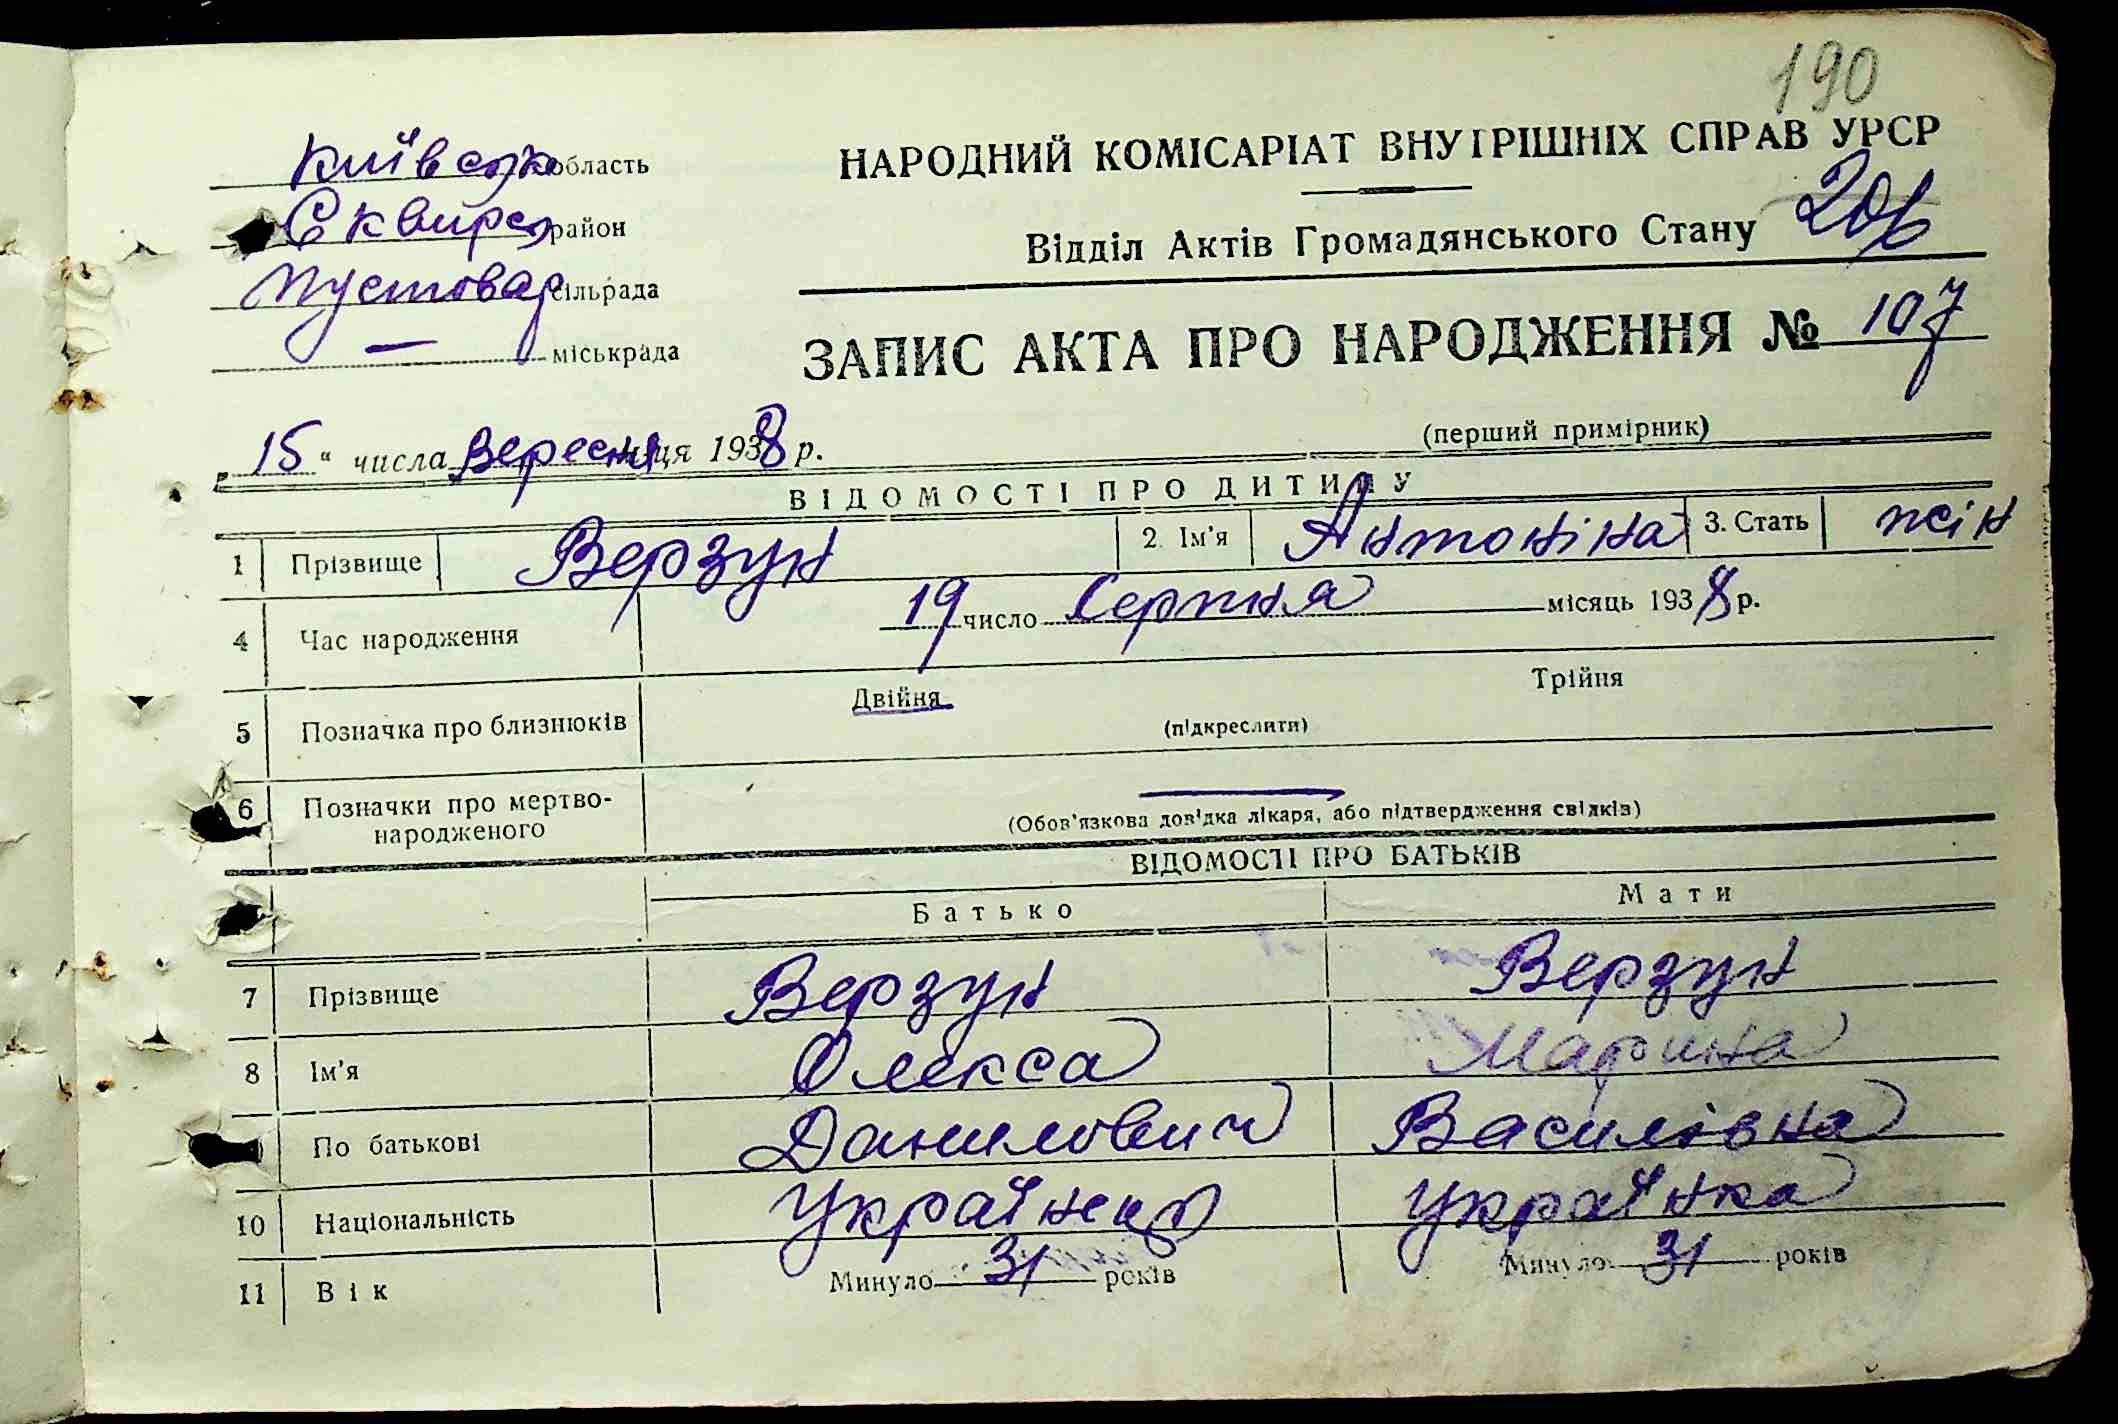 190
Київськ область
НАРОДНИЙ КОМІСАРІАТ ВНУТРІШНІХ СПРАВ УРСР
Сквирсь район
Відділ Актів Громадянського Стану
Пустовар сільрада
— міськрада
ЗАПИС АКТА ПРО НАРОДЖЕННЯ № 107
(перший примірник)
„15“ числа Вересня м-ця 1938 р.
ВІДОМОСТІ ПРО ДИТИНУ
1 Прізвище Верзун 2. Ім'я Антоніна 3. Стать жін
4 Час народження 19 число Серпня місяць 1938 р.
5 Позначка про близнюків Двійня Трійня
(підкреслити)
6 Позначки про мертво-
народженого —
(Обов'язкова довідка лікаря, або підтвердження свідків)
ВІДОМОСТІ ПРО БАТЬКІВ
Батько Мати
7 Прізвище Верзун Верзун
8 Ім'я Олекса Марина
По батькові Данилович Василівна
10 Національність Українець Українка
11 Вік Минуло 31 років Минуло 31 років